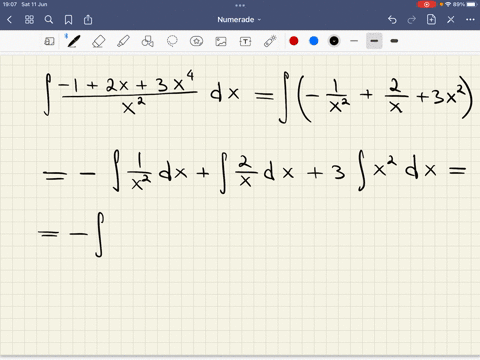 19:07 Sat 11 Jun ... 89%
Numerade
∫ (-1 + 2x + 3x⁴)/x² dx = ∫(-1/x² + 2/x + 3x²)
= - ∫ 1/x² dx + ∫ 2/x dx + 3 ∫ x² dx =
= - ∫